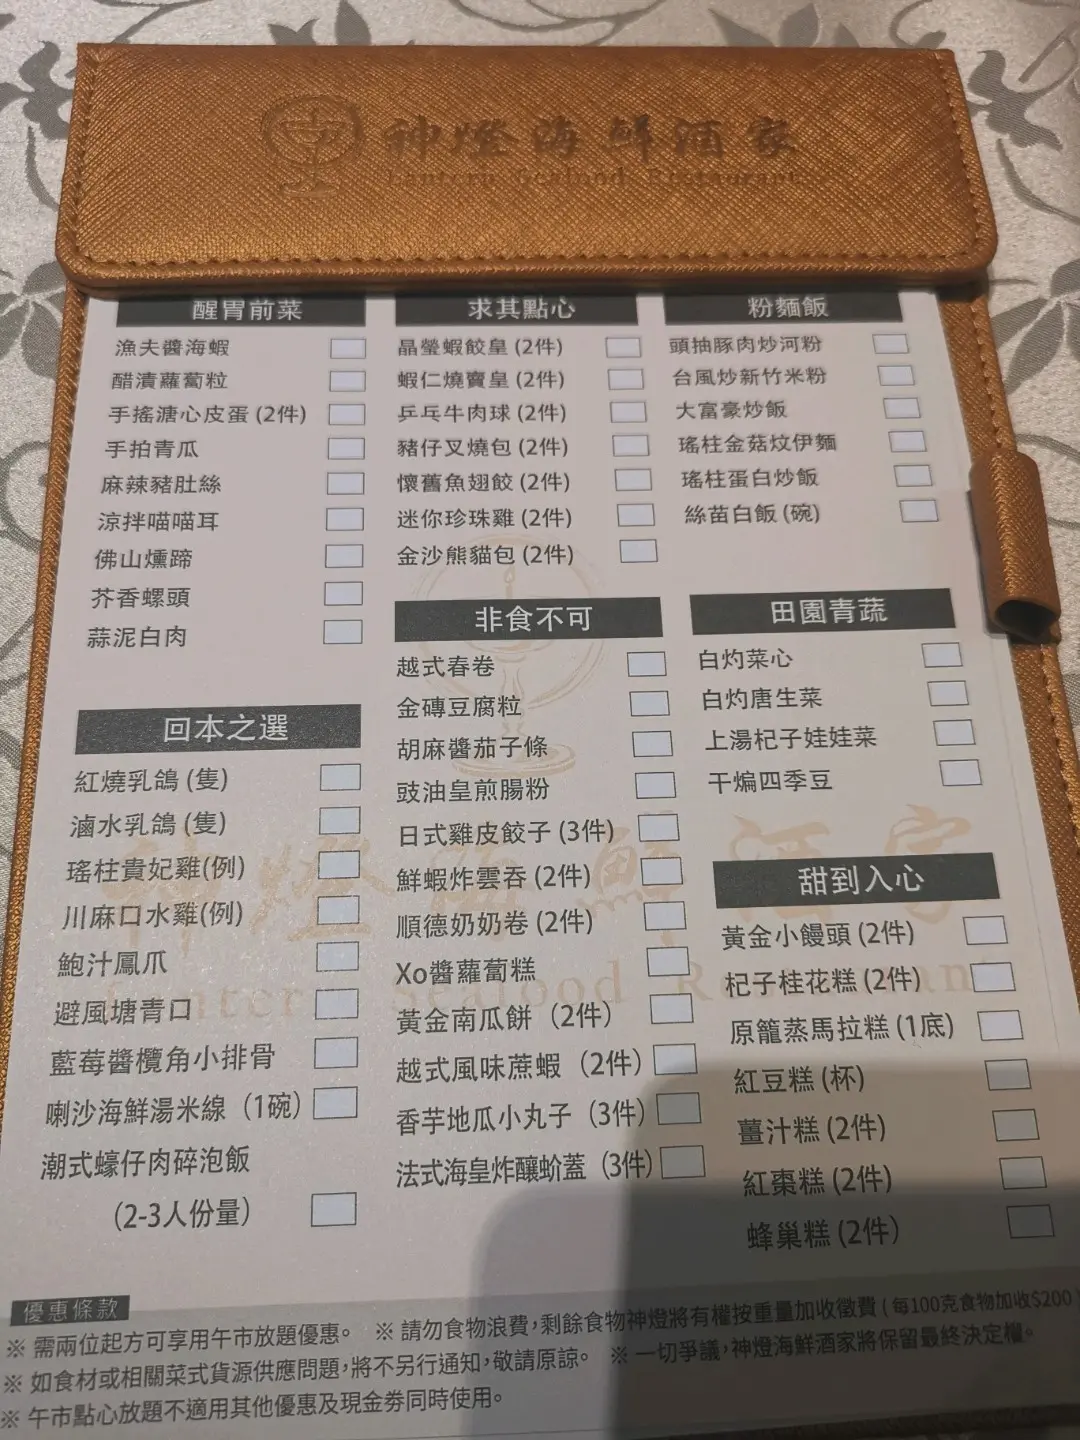 神燈海鮮酒家
Lantern Seafood Restaurant
醒胃前菜
漁夫醬海蝦
醋漬蘿蔔粒
手搖溏心皮蛋 (2件)
手拍青瓜
麻辣豬肚絲
涼拌喵喵耳
佛山燻蹄
芥香螺頭
蒜泥白肉
回本之選
紅燒乳鴿 (隻)
滷水乳鴿 (隻)
瑤柱貴妃雞(例)
川麻口水雞(例)
鮑汁鳳爪
避風塘青口
藍莓醬欖角小排骨
喇沙海鮮湯米線（1碗）
潮式蠔仔肉碎泡飯
（2-3人份量）
求其點心
晶瑩蝦餃皇 (2件)
蝦仁燒賣皇 (2件)
乒乓牛肉球 (2件)
豬仔叉燒包 (2件)
懷舊魚翅餃 (2件)
迷你珍珠雞 (2件)
金沙熊貓包 (2件)
非食不可
越式春卷
金磚豆腐粒
胡麻醬茄子條
豉油皇煎腸粉
日式雞皮餃子 (3件)
鮮蝦炸雲吞 (2件)
順德奶奶卷 (2件)
Xo醬蘿蔔糕
黃金南瓜餅（2件）
越式風味蔗蝦（2件）
香芋地瓜小丸子（3件）
法式海皇炸釀蚧蓋（3件）
粉麵飯
頭抽豚肉炒河粉
台風炒新竹米粉
大富豪炒飯
瑤柱金菇炆伊麵
瑤柱蛋白炒飯
絲苗白飯 (碗)
田園青蔬
白灼菜心
白灼唐生菜
上湯杞子娃娃菜
干煸四季豆
甜到入心
黃金小饅頭 (2件)
杞子桂花糕 (2件)
原籠蒸馬拉糕 (1底)
紅豆糕 (杯)
薑汁糕 (2件)
紅棗糕 (2件)
蜂巢糕 (2件)
神燈海鮮酒家
Lantern Seafood Restaurant
優惠條款
※ 需兩位起方可享用午市放題優惠。 ※ 請勿食物浪費，剩餘食物神燈將有權按重量加收徵費 ( 每100克食物加收$200 )
※ 如食材或相關菜式貨源供應問題，將不另行通知，敬請原諒。 ※ 一切爭議，神燈海鮮酒家將保留最終決定權。
※ 午市點心放題不適用其他優惠及現金券同時使用。